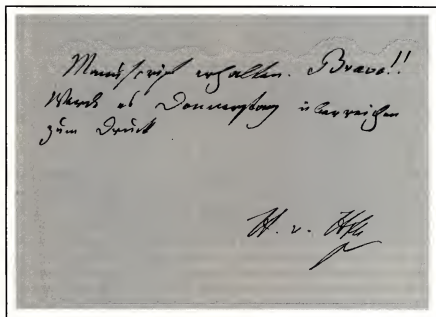 Manuscript erhalten. Bravo!!
Werde es Donnerstag überreichen
zum Druck
H. v. Hltz